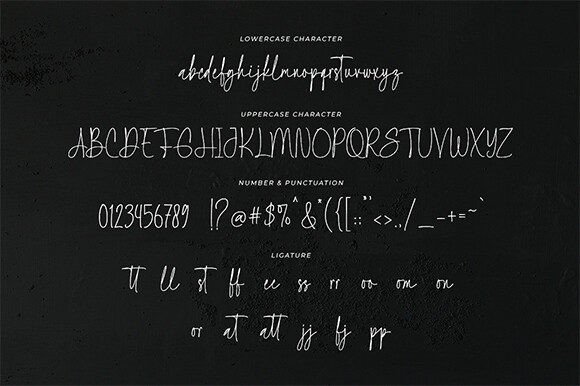 LOWERCASE CHARACTER
abcdefghijklmnopqrstuvwxyz
UPPERCASE CHARACTER
ABCDEFGHIJKLMNOPQRSTUVWXYZ
NUMBER & PUNCTUATION
0123456789 !?@#$%^&*({[:;"'<>.,/_-+=~`
LIGATURE
tt ll st ff ee ss rr oo om on
or at att jj fj pp